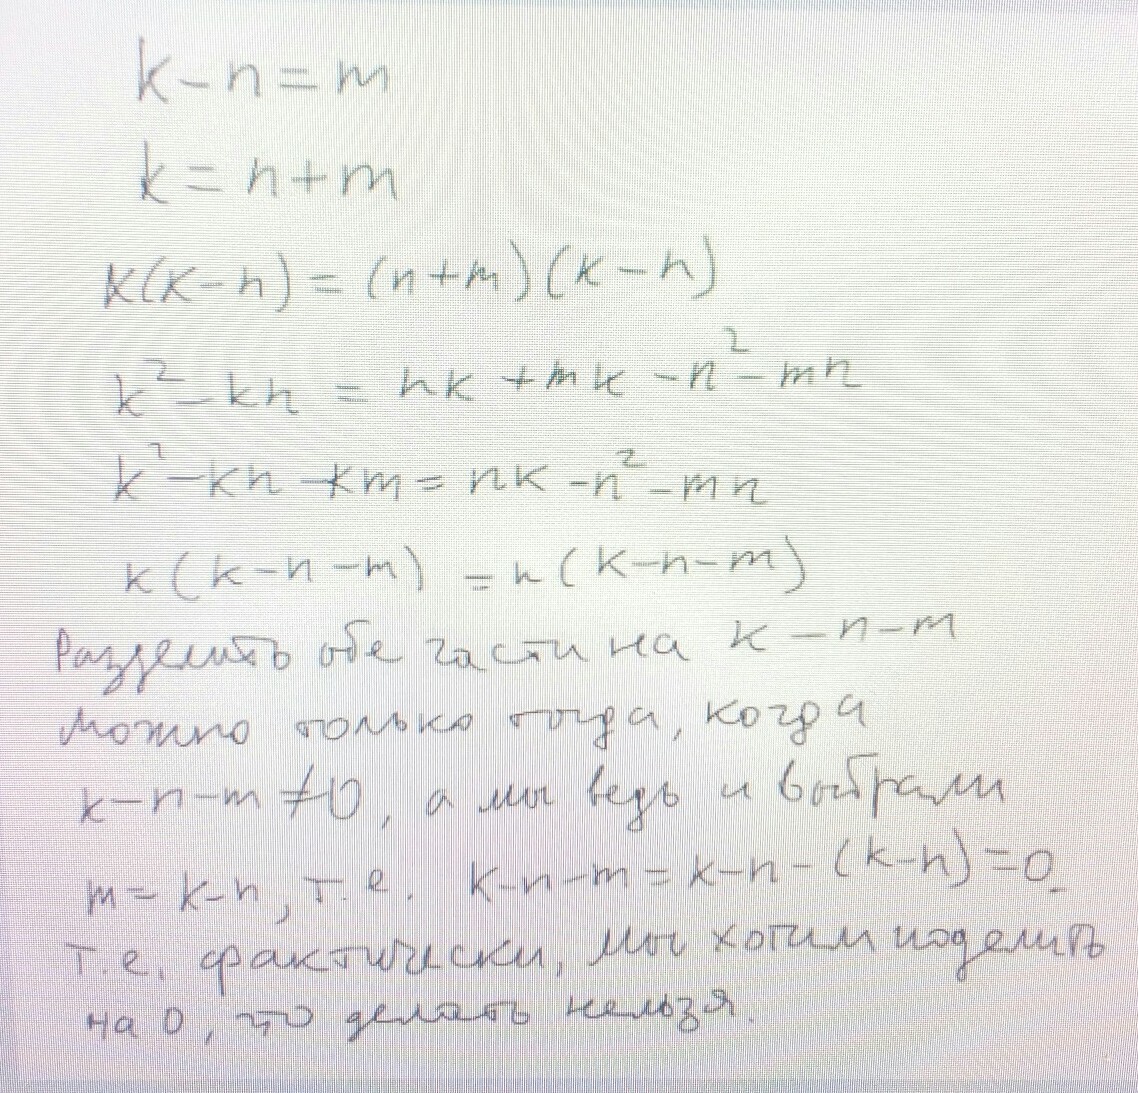 k-n=m
k=n+m
k(k-n)=(n+m)(k-n)
k²-kn = nk +mk -n²-mn
k²-kn-km= nk -n²-mn
k(k-n-m) =n(k-n-m)
Разделить обе части на k-n-m
можно только тогда, когда
k-n-m≠0, а мы ведь и выбрали
m=k-n, т.е. k-n-m=k-n-(k-n)=0
т.е. фактически, мы хотим поделить
на 0, что делать нельзя.